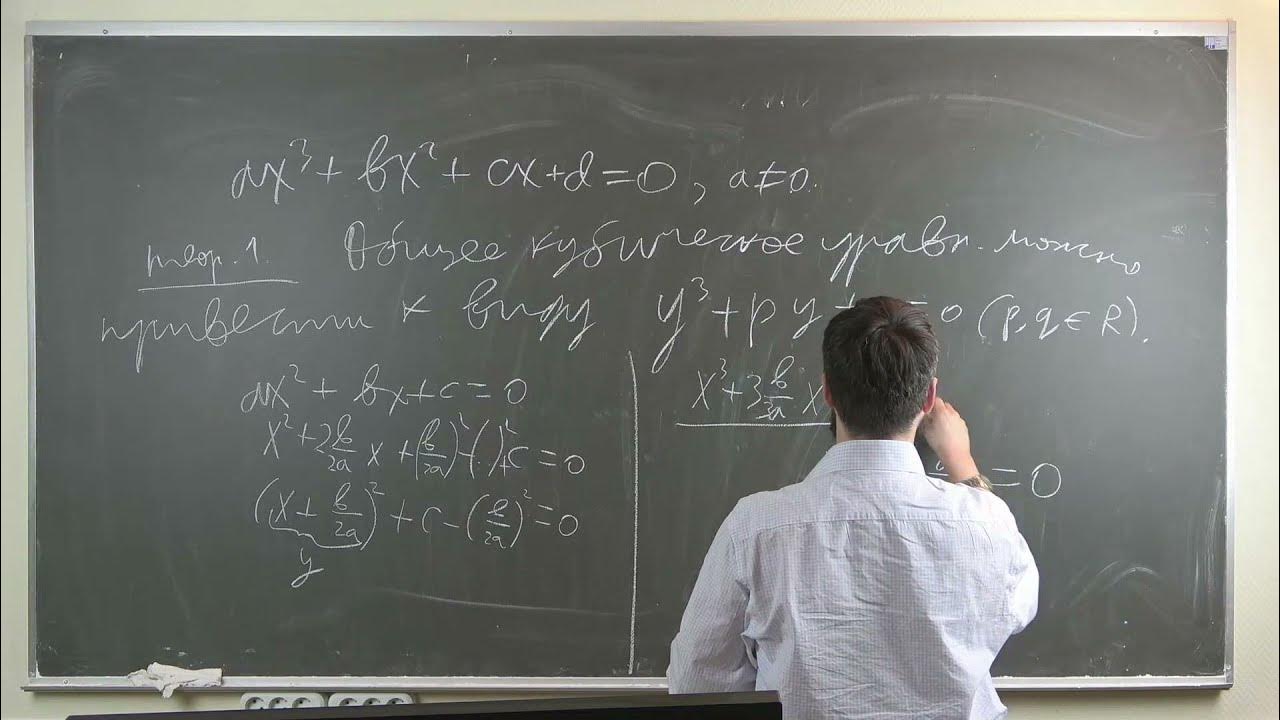 ax³ + bx² + cx + d = 0, a ≠ 0.
теор. 1. Общее кубическое уравн. можно
привести к виду y³ + py + = 0 (p, q ∈ R).
ax² + bx + c = 0
x² + 2 b/2a x + (b/2a)² - ( )² + c = 0
(x + b/2a)² + c - (b/2a)² = 0
y
x³ + 3 b/3a x
= 0